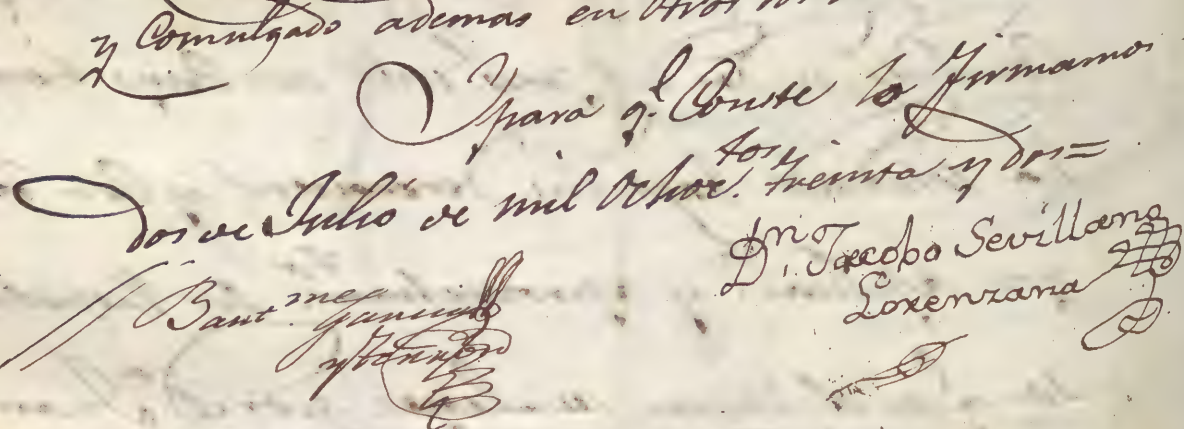 y Comulgado ademas en otros
Y para q.l Conste lo firmamos
dos de Julio de mil Ochoc.tos treinta y dos=
D.n Jacobo Sevillano
Lorenzana
Bart.me